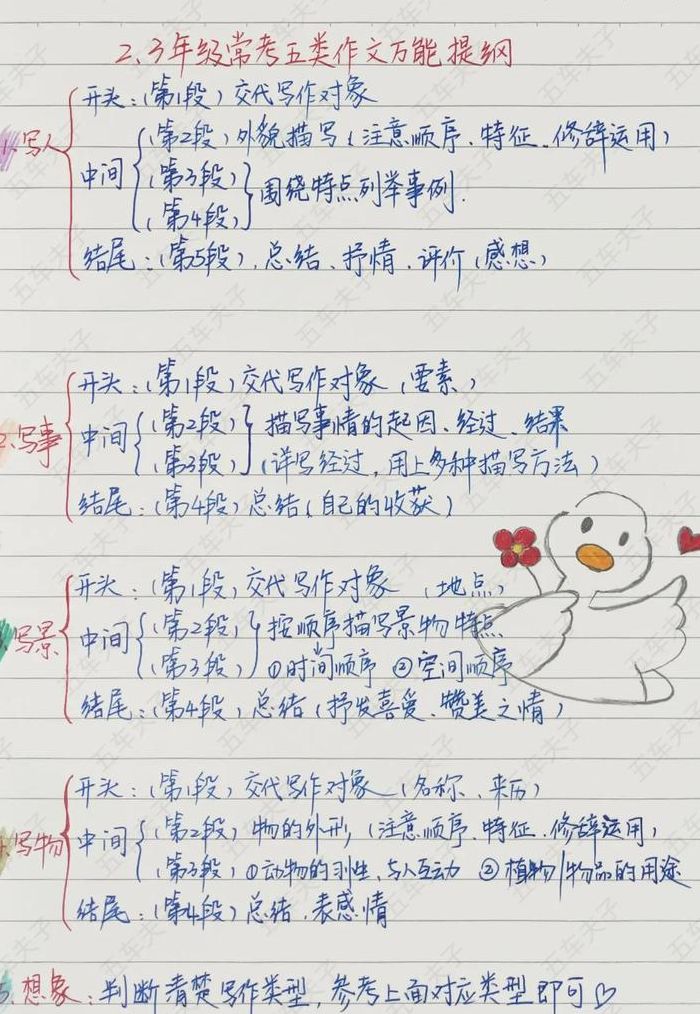 2、3年级常考五类作文万能提纲
1.写人
开头：（第1段）交代写作对象
中间
（第2段）外貌描写（注意顺序、特征、修辞运用）
（第3段）
（第4段）
围绕特点列举事例.
结尾：（第5段）总结、抒情、评价（感想）
2.写事
开头：（第1段）交代写作对象（要素）
中间
（第2段）描写事情的起因、经过、结果
（第3段）（详写经过，用上多种描写方法）
结尾：（第4段）总结（自己的收获）
写景
开头：（第1段）交代写作对象（地点）
中间
（第2段）按顺序描写景物特点
（第3段）①时间顺序 ②空间顺序
结尾：（第4段）总结（抒发喜爱、赞美之情）
写物
开头：（第1段）交代写作对象（名称、来历）
中间
（第2段）物的外形（注意顺序、特征、修辞运用）
（第3段）①动物的习性，与人互动 ②植物/物品的用途
结尾：（第4段）总结、表感情
5.想象：判断清楚写作类型，参考上面对应类型即可♡
五车夫子